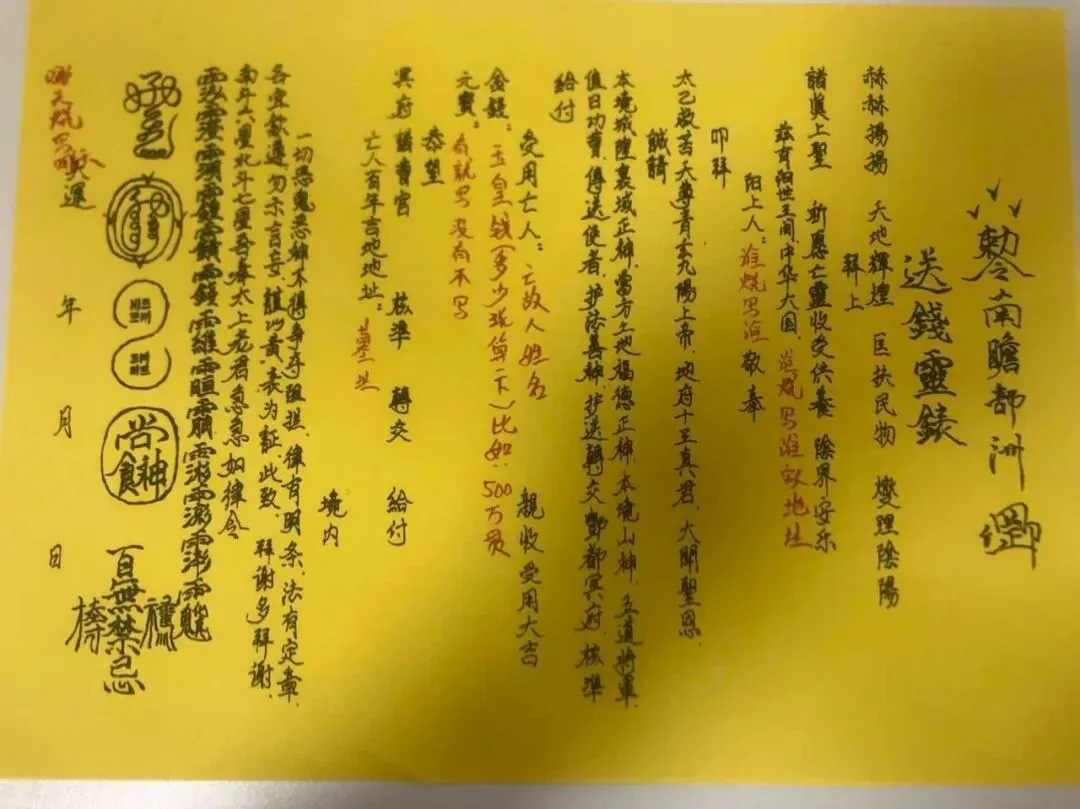 敕令南瞻部洲
送錢靈錶
赫赫揚揚 天地輝煌 匡扶民物 燮理陰陽
拜上
諸真上聖 祈恩亡靈收受供養 陰界安乐
兹有阳世空间中华大国、谁烧写谁家地址
阳上人：谁烧写谁敬奉
叩拜
太乙救苦天尊青玄九陽上帝、地府十王真君、大開聖恩、
誠請
本境城隍裏域正神、當方土地福德正神、本境山神、五道將軍、
值日功曹、傳送使者、护法善神、护送轉交酆都冥府、核準
給付
受用亡人：亡故人姓名 親收受用大吉
金錢：玉皇钱（多少说算下）比如：500万贯
元寶：有就写没有不写
恭望
冥府諸曹官 核準 轉交 給付
亡人百年吉地地址：墓地 境内
一切恶鬼恶神不得争夺阻拦、律有明条、法有定章、
各宜欽遵勿示言妄 謹以黄表为証、此致、 拜谢多拜谢、
南斗六星北斗七星吾奉太上老君急急如律令
尚食神
百無禁忌
天運 年 月 日
哪天烧写哪天